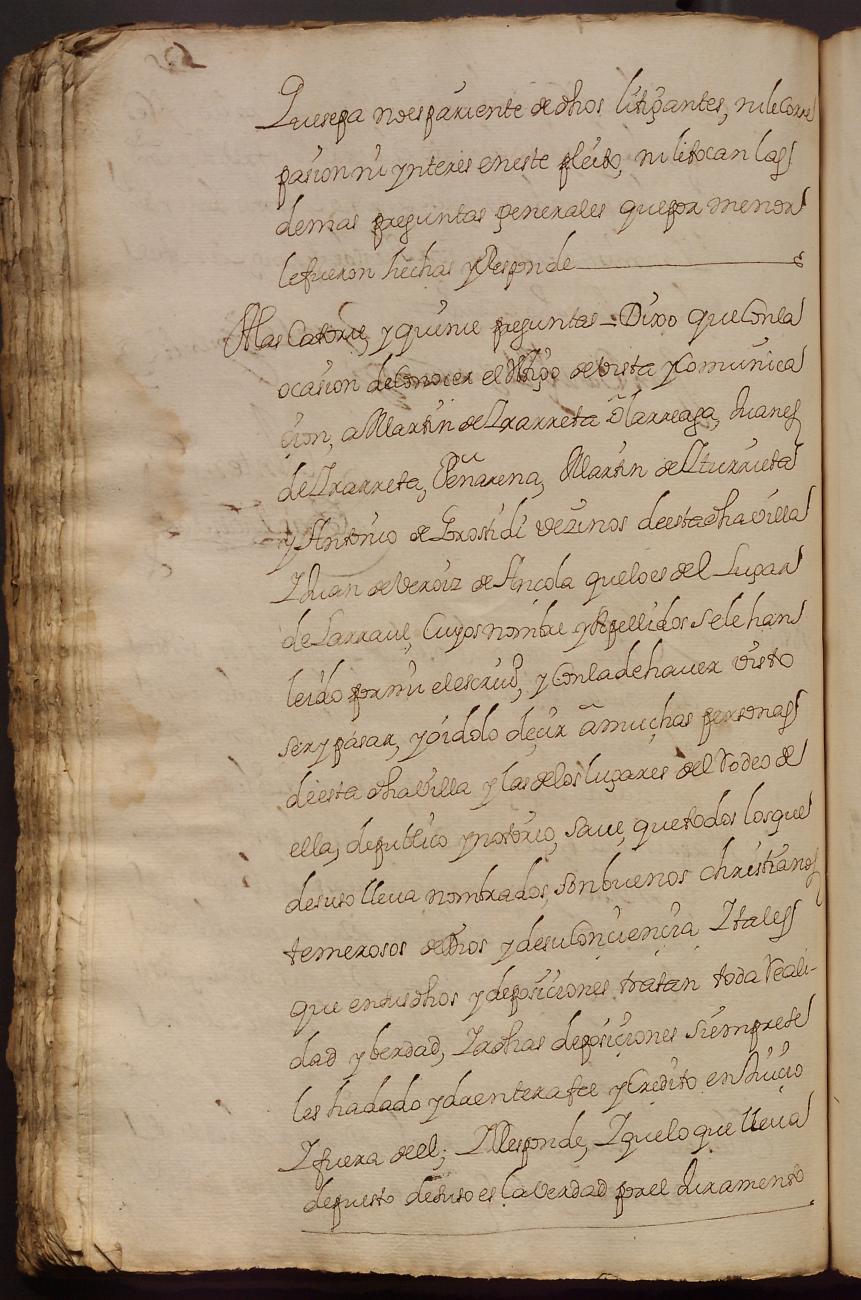 Que sepa no es pariente de dhos litigantes, ni le corre
pasion ni ynteres en este pleito, ni li tocan las
demas preguntas generales que por menor
le fueron hechas y Responde
A las Catorce, y quince preguntas – Dixo que Con la
ocasion de Conocer el tstgo de vista y Comunica
cion, a Martin de Yrarreta Olarreaga, Juanes
de Yrarreta, Peñarena, Martin de Yturrieta
y Antonio de Grostidi vezinos de esta dha villa
Y Juan de Veroiz de Ancola que lo es del Lugar
de Larraul, Cuyos nombre y Apellidos se le han
leido por mi el escriuo, y Con la de hauer visto
ser y pasar, y oidolo decir a muchas personas
de esta dha Villa y las de los lugares del Rodeo de
ella, de publico y notorio, saue, que todos los que
desuso lleva nombrados, son buenos christianos
temerosos de Dios y de su Conciencia Y tales
que en sus dhos y deposiciones tratan toda Reali-
dad y berdad, Y a dhas deposiciones siempre se
les ha dado y da entera fee y Credito en Juicio
Y fuera de el; Y Responde, Y que lo que lleua
depuesto de suso es la verdad por el Juramento